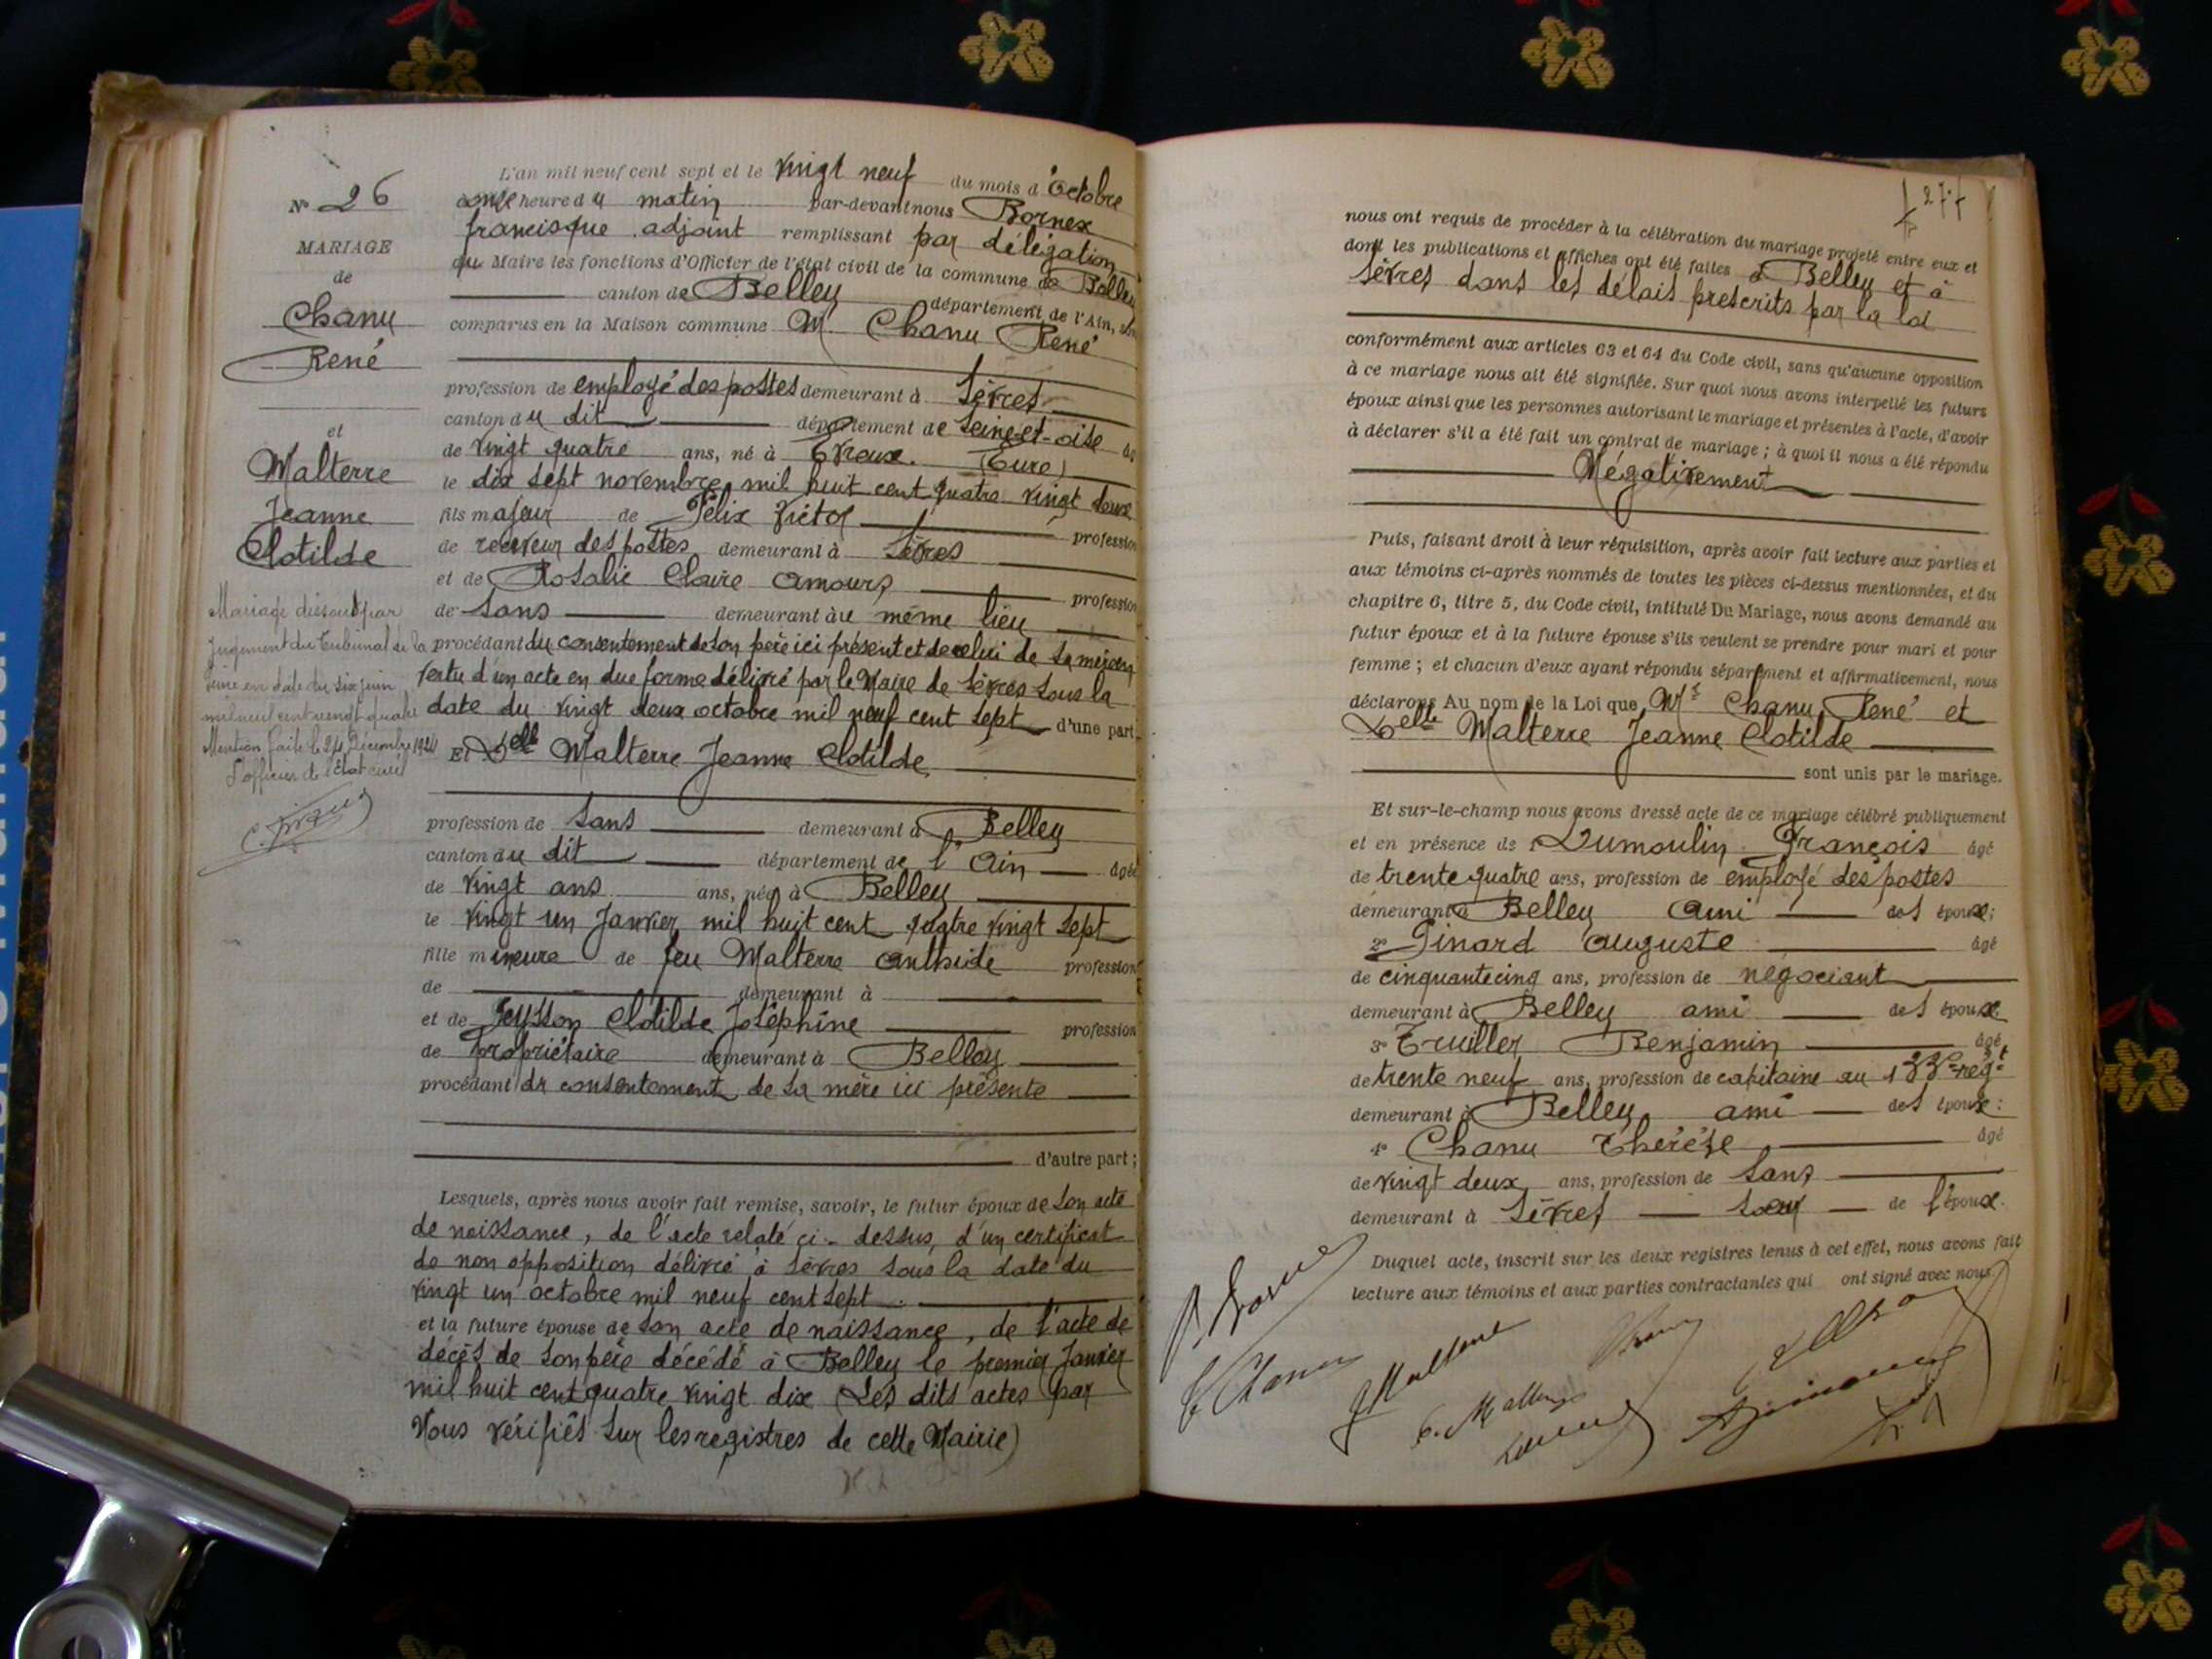 N° 26
MARIAGE
de
Chanu
René
et
Malterre
Jeanne
Clotilde
Mariage dissout par
jugement du tribunal de la
Seine en date du six juin
mil neuf cent vingt quatre
Mention faite le 24 Décembre 1924
L'officier de l'état civil
L'an mil neuf cent sept et le vingt neuf du mois d'octobre
onze heure du matin par-devant nous Bornex
francisque adjoint remplissant par délégation
du Maire les fonctions d'Officier de l'état civil de la commune de Belley
canton de Belley département de l'Ain, sont
comparus en la Maison commune Mr Chanu René
profession de employé des postes demeurant à Sèvres
canton du dit département de Seine-et-oise âgé
de vingt quatre ans, né à Evreux. (Eure)
le dix sept novembre mil huit cent quatre vingt deux
fils majeur de Félix Victor profession
de receveur des postes demeurant à Sèvres
et de Rosalie Claire Amours profession
de sans demeurant au même lieu
procédant du consentement de son père ici présent et de celui de sa mère en
vertu d'un acte en due forme délivré par le Maire de Sèvres sous la
date du vingt deux octobre mil neuf cent sept d'une part.
Et Delle Malterre Jeanne Clotilde
profession de sans demeurant à Belley
canton du dit département de l'Ain âgée
de vingt ans ans, née à Belley
le vingt un Janvier mil huit cent quatre vingt sept
fille mineure de feu Malterre Anthide profession
de demeurant à
et de Jeysson Clotilde Joséphine profession
de propriétaire demeurant à Belley
procédant du consentement de sa mère ici présente
d'autre part ;
Lesquels, après nous avoir fait remise, savoir, le futur époux de son acte
de naissance, de l'acte relaté ci-dessus, d'un certificat
de non opposition délivré à Sèvres sous la date du
vingt un octobre mil neuf cent sept.
et la future épouse de son acte de naissance, de l'acte de
décès de son père décédé à Belley le premier Janvier
mil huit cent quatre vingt dix (Les dits actes par
Nous vérifiés sur les registres de cette Mairie)
277
nous ont requis de procéder à la célébration du mariage projeté entre eux et
dont les publications et affiches ont été faites à Belley et à
Sèvres dans les délais prescrits par la loi
conformément aux articles 63 et 64 du Code civil, sans qu'aucune opposition
à ce mariage nous ait été signifiée. Sur quoi nous avons interpellé les futurs
époux ainsi que les personnes autorisant le mariage et présentes à l'acte, d'avoir
à déclarer s'il a été fait un contrat de mariage ; à quoi il nous a été répondu
Négativement
Puis, faisant droit à leur réquisition, après avoir fait lecture aux parties et
aux témoins ci-après nommés de toutes les pièces ci-dessus mentionnées, et du
chapitre 6, titre 5, du Code civil, intitulé Du Mariage, nous avons demandé au
futur époux et à la future épouse s'ils veulent se prendre pour mari et pour
femme ; et chacun d'eux ayant répondu séparément et affirmativement, nous
déclarons Au nom de la Loi que Mr Chanu René et
Delle Malterre Jeanne Clotilde
sont unis par le mariage.
Et sur-le-champ nous avons dressé acte de ce mariage célébré publiquement
et en présence de 1° Dumoulin François âgé
de trente quatre ans, profession de employé des postes
demeurant à Belley ami des époux ;
2° Ginard Auguste âgé
de cinquante cinq ans, profession de négociant
demeurant à Belley ami des époux
3° Truiller Benjamin âgé
de trente neuf ans, profession de capitaine au 133e régt
demeurant à Belley ami des époux :
4° Chanu Thérèse âgé
de vingt deux ans, profession de sans
demeurant à Sèvres sœur de l'époux.
Duquel acte, inscrit sur les deux registres tenus à cet effet, nous avons fait
lecture aux témoins et aux parties contractantes qui ont signé avec nous
J Malterre